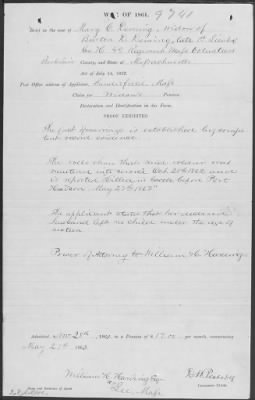 WAR OF 1861.
9741
Brief in the case of Mary C. Deming, Widow of
Burton D. Deming, late 1st Lieut
Co. H. 49 Regiment Mass Volunteers
Berkshire County, and State of Massachusetts
Act of July 14, 1862.
Post Office address of Applicant, Sandisfield Mass
Claim for Widow's Pension
Declaration and Identification in due Form.
PROOF EXHIBITED
The fact of marriage is established by
record evidence
The rolls show that said soldier was
mustered into service Oct. 28th 1862 and
is reported Killed in battle before Port
Hudson, May 27th 1863"
The applicant states that her deceased
husband left no child under the age of
sixteen
Power of Attorney to William H. Harding
Admitted, Nov 20th, 1863, to a Pension of $17.00 per month, commencing
May 27th 1863
William H. Harding Esq
Lee, Mass